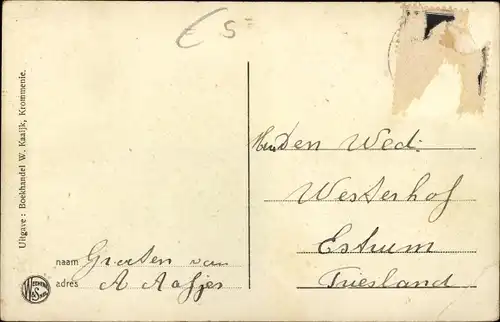 € 5-
Uitgave: Boekhandel W. Kaaijk, Krommenie.
den Wed:
Westerhof
Estrum
Friesland
naam Groeten van
adres A Aafjes